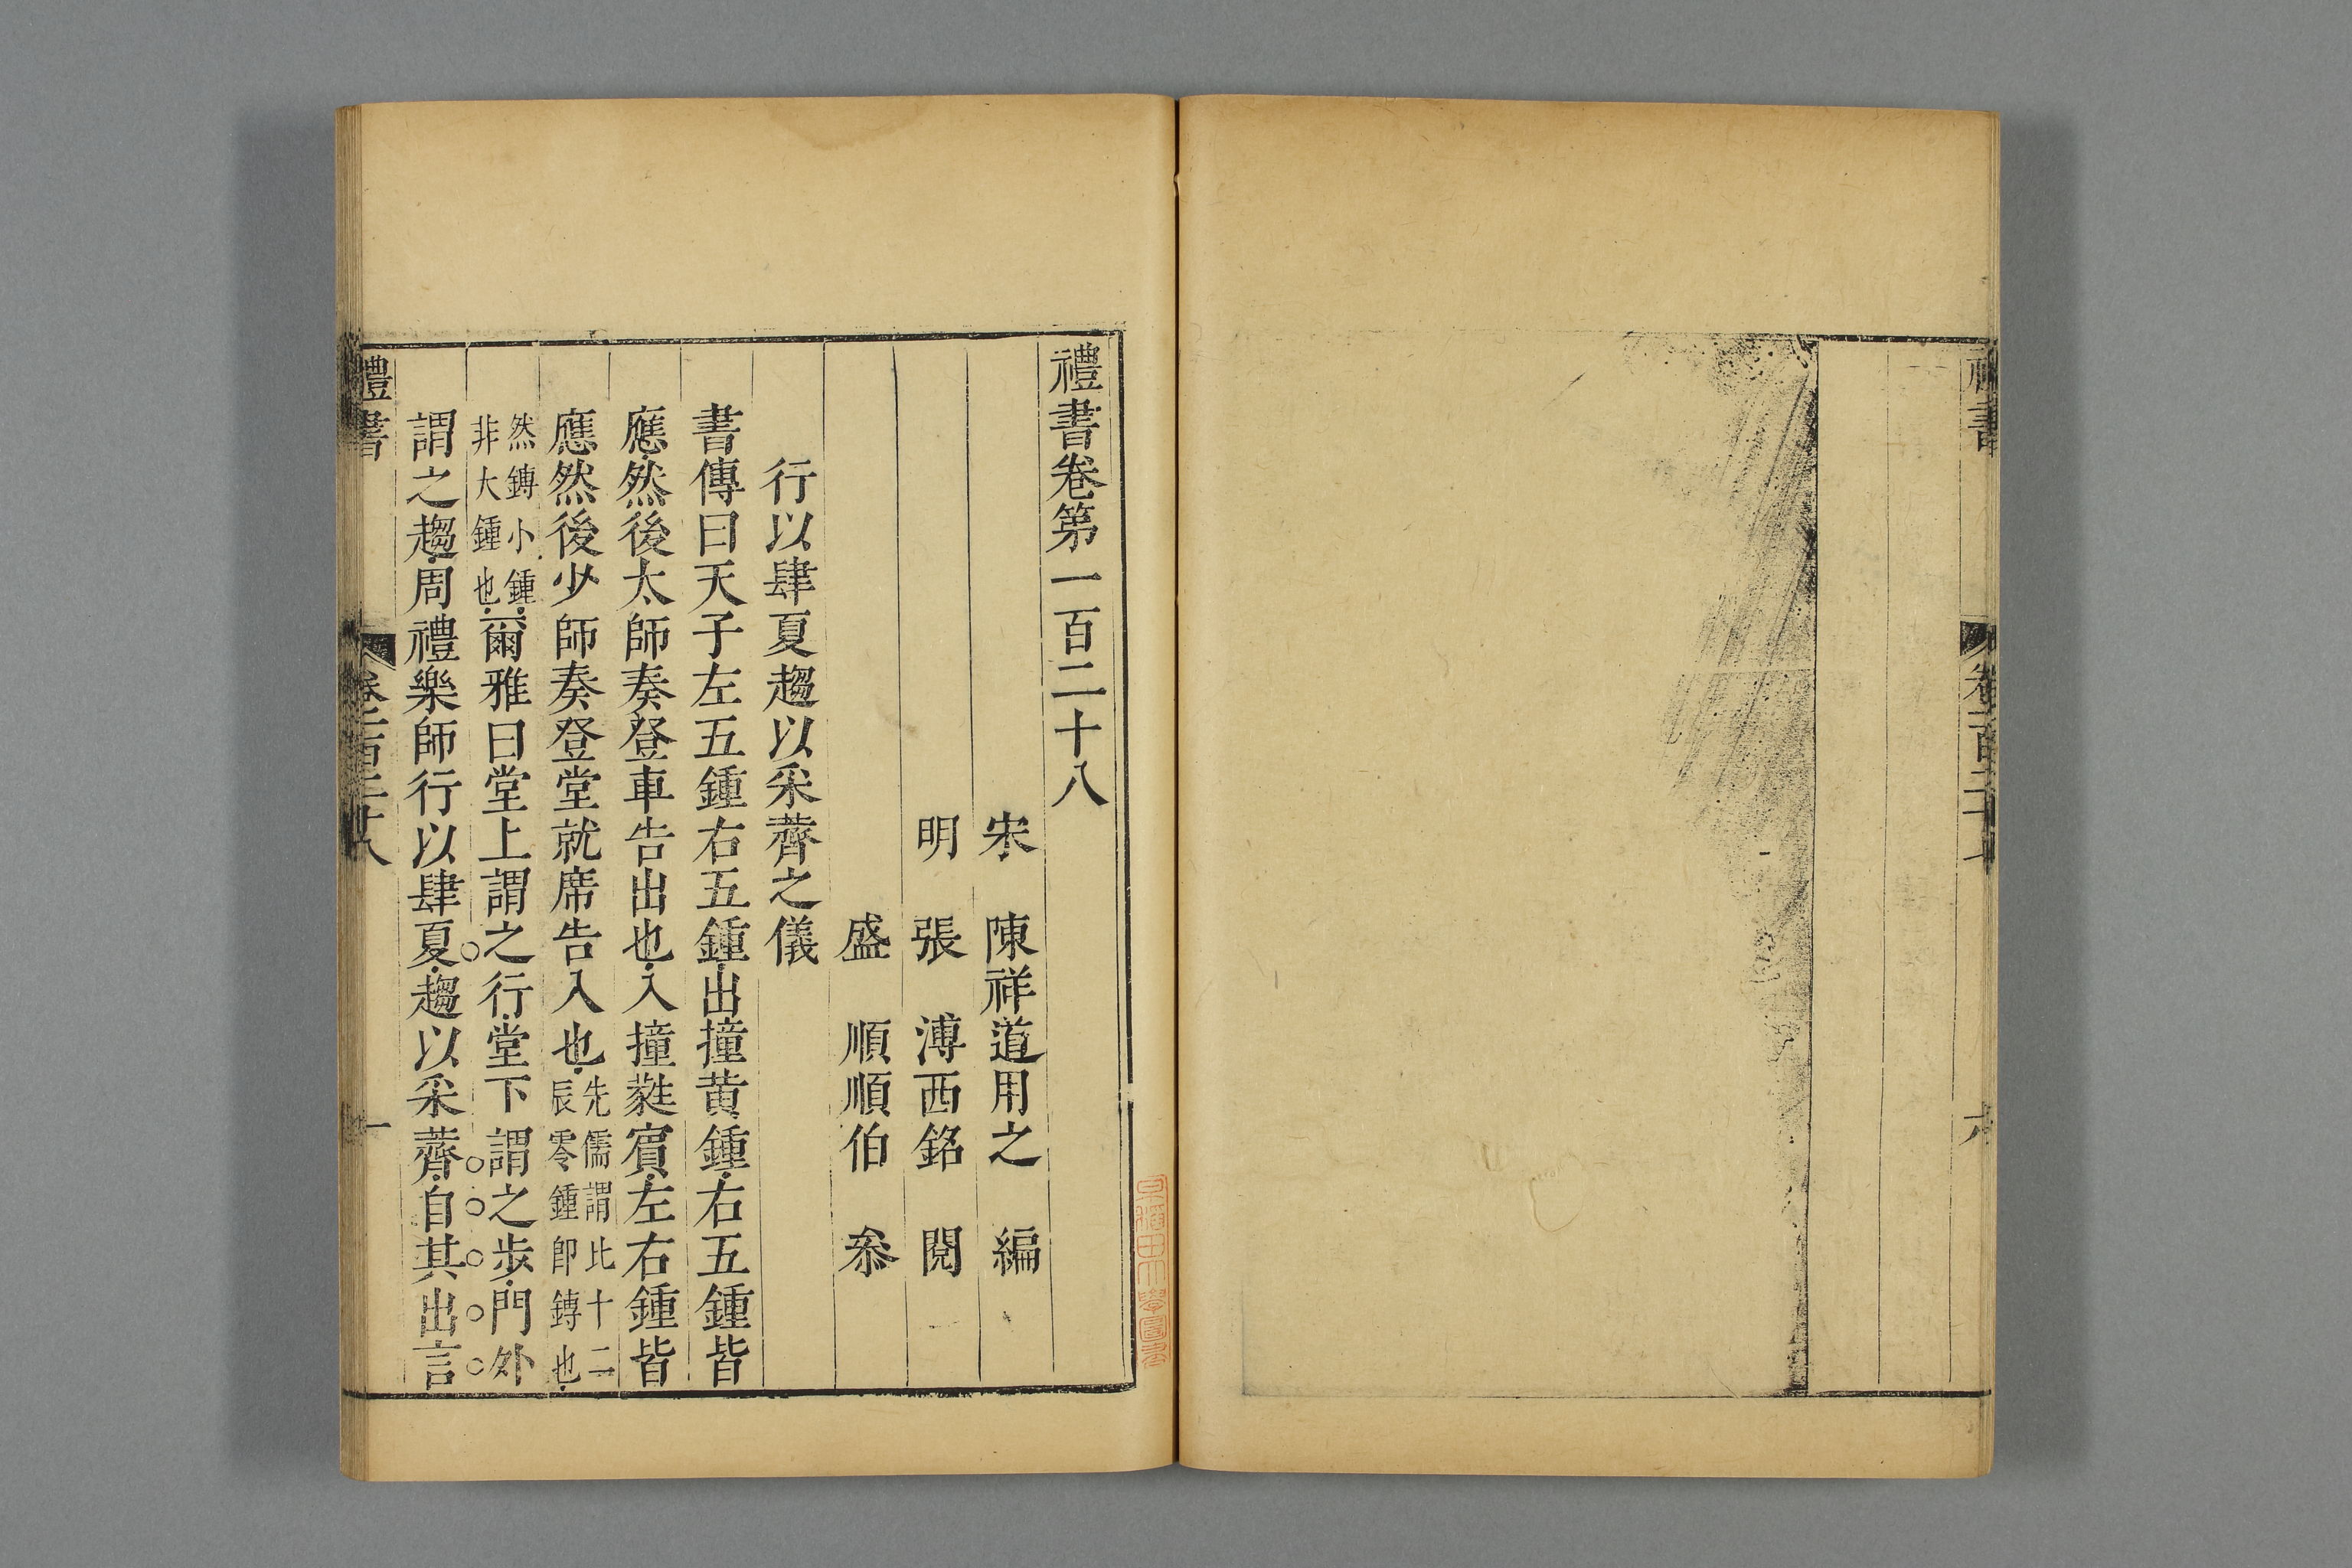 禮書
卷一百二十七
六
禮書卷第一百二十八
宋 陳祥道用之 編
明 張 溥西銘 閱
盛 順順伯 叅
行以肆夏趨以采薺之儀
書傳曰天子左五鍾右五鍾出撞黄鍾右五鍾皆
應然後太師奏登車告出也入撞蕤賓左右鍾皆
應然後少師奏登堂就席告入也先儒謂比十二辰零鍾即鎛也
然鎛小鍾非大鍾也爾雅曰堂上謂之行堂下謂之步門外
謂之趨周禮樂師行以肆夏趨以采薺自其出言
禮書
卷一百二十八
一
早稲田大學圖書